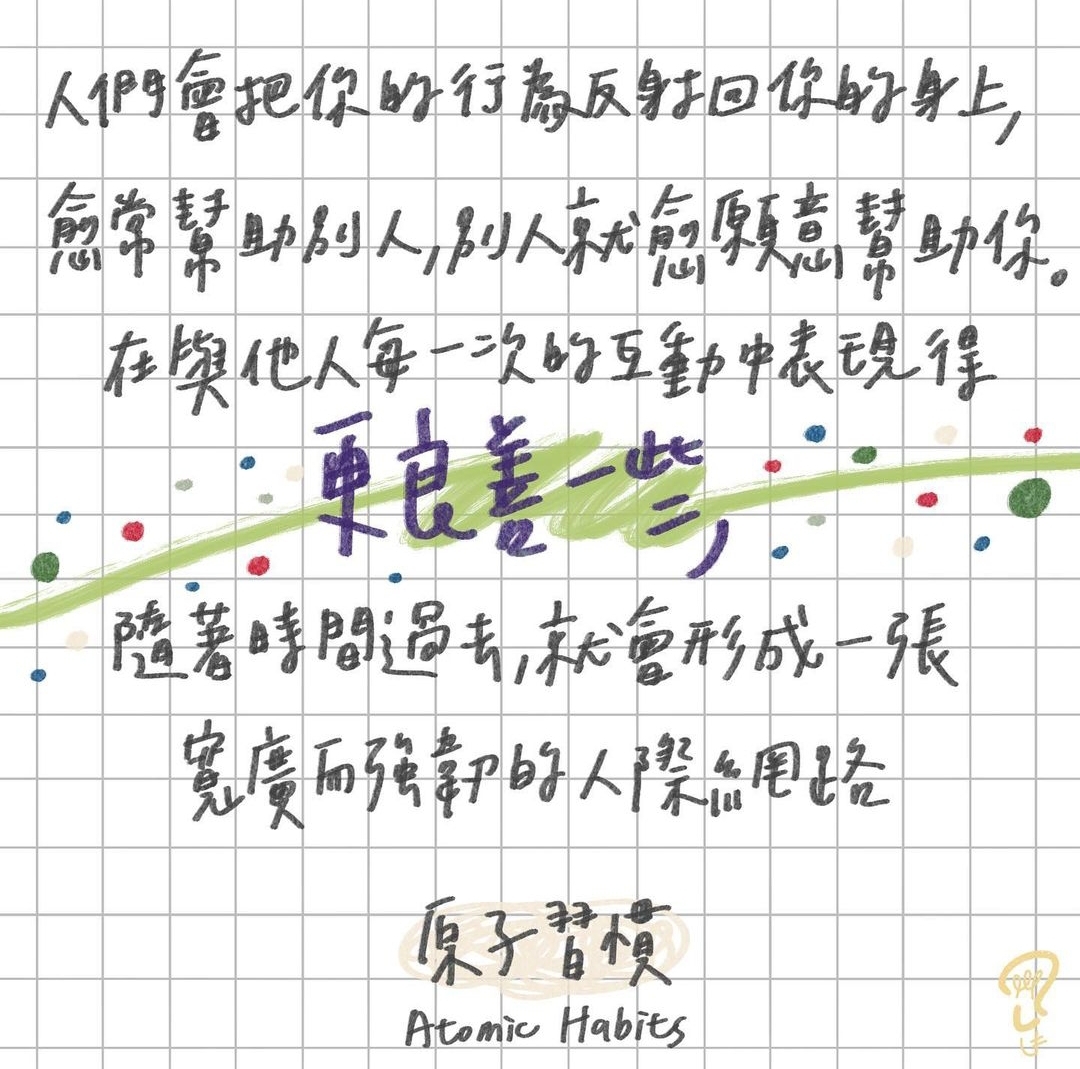 人們會把你的行為反射回你的身上,
愈常幫助別人,別人就愈願意幫助你。
在與他人每一次的互動中表現得
更良善一些,
隨著時間過去,就會形成一張
寬廣而強韌的人際網路
原子習慣
Atomic Habits